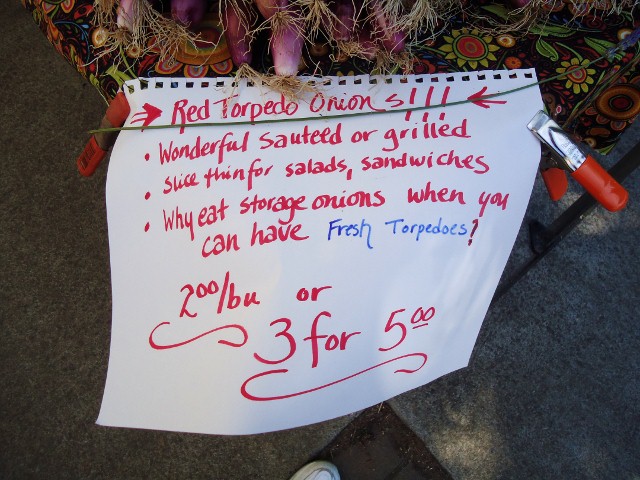 → Red Torpedo Onions!!! ←
• Wonderful sauteed or grilled
• slice thin for salads, sandwiches
• Why eat storage onions when you
can have Fresh Torpedoes?
2⁰⁰/bu or
3 for 5⁰⁰